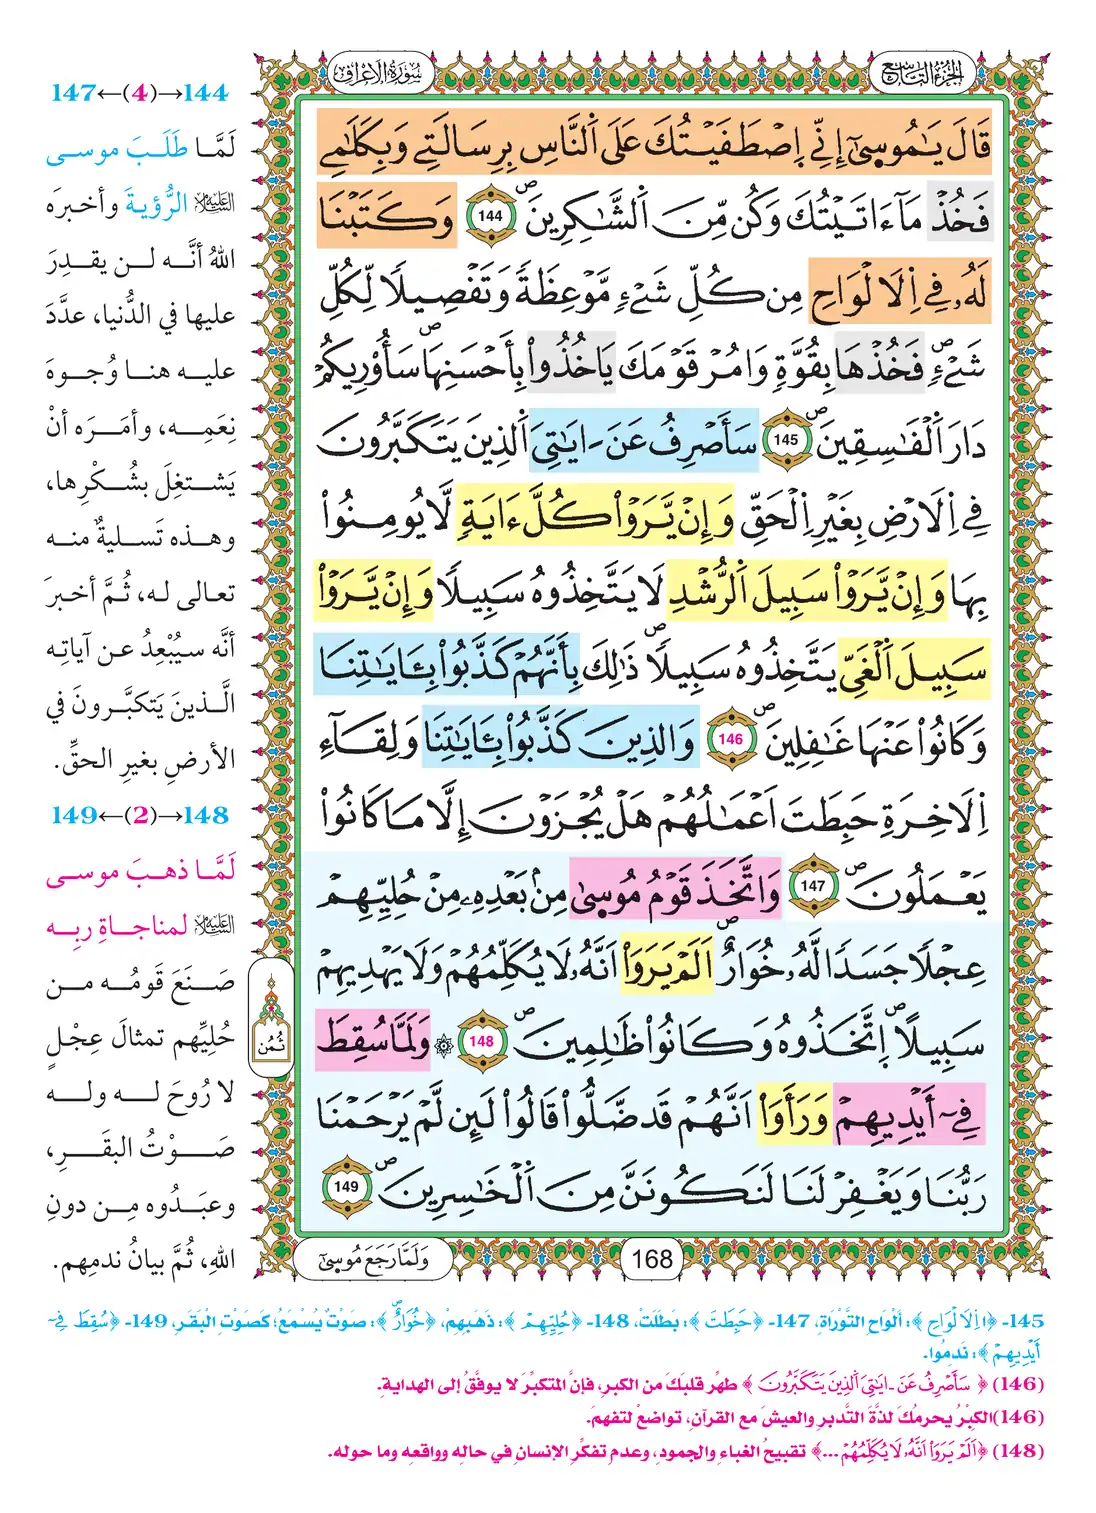 الجزء التاسع
سورة الاعراف
قَالَ يَٰمُوسَىٰٓ إِنِّے اِ۪صْطَفَيْتُكَ عَلَى اَ۬لنَّاسِ بِرِسَٰلَتِے وَبِكَلَٰمِے
فَخُذْ مَآ ءَاتَيْتُكَ وَكُن مِّنَ اَ۬لشَّٰكِرِينَۖ 144 وَكَتَبْنَا
لَهُۥ فِے اِ۬لَالْوَاحِ مِن كُلِّ شَےْءٖ مَّوْعِظَةٗ وَتَفْصِيلاٗ لِّكُلِّ
شَےْءٖۖ فَخُذْهَا بِقُوَّةٖ وَامُرْ قَوْمَكَ يَاخُذُواْ بِأَحْسَنِهَاۖ سَأُوْرِيكُمْ
دَارَ اَ۬لْفَٰسِقِينَۖ 145 سَأَصْرِفُ عَنَ ـ ايَٰتِيَ اَ۬لذِينَ يَتَكَبَّرُونَ
فِے اِ۬لَارْضِ بِغَيْرِ اِ۬لْحَقِّ وَإِنْ يَّرَوْاْ كُلَّ ءَايَةٖ لَّا يُومِنُواْ
بِهَا وَإِنْ يَّرَوْاْ سَبِيلَ اَ۬لرُّشْدِ لَا يَتَّخِذُوهُ سَبِيلاٗ وَإِنْ يَّرَوْاْ
سَبِيلَ اَ۬لْغَيِّ يَتَّخِذُوهُ سَبِيلاٗۖ ذَٰلِكَ بِأَنَّهُمْ كَذَّبُواْ بِـَٔايَٰتِنَا
وَكَانُواْ عَنْهَا غَٰفِلِينَۖ 146 وَالذِينَ كَذَّبُواْ بِـَٔايَٰتِنَا وَلِقَآءِ
اِ۬لَاخِرَةِ حَبِطَتَ اَعْمَٰلُهُمْ هَلْ يُجْزَوْنَ إِلَّا مَا كَانُواْ
يَعْمَلُونَۖ 147 وَاتَّخَذَ قَوْمُ مُوسَىٰ مِنۢ بَعْدِهِۦ مِنْ حُلِيِّهِمْ
عِجْلاٗ جَسَداٗ لَّهُۥ خُوَارٌۖ اَلَمْ يَرَوَاْ اَنَّهُۥ لَا يُكَلِّمُهُمْ وَلَا يَهْدِيهِمْ
سَبِيلاًۖ اِ۪تَّخَذُوهُ وَكَانُواْ ظَٰلِمِينَۖ 148 ۞ وَلَمَّا سُقِطَ
فِےٓ أَيْدِيهِمْ وَرَأَوَاْ اَنَّهُمْ قَد ضَّلُّواْ قَالُواْ لَئِن لَّمْ يَرْحَمْنَا
رَبُّنَا وَيَغْفِرْ لَنَا لَنَكُونَنَّ مِنَ اَ۬لْخَٰسِرِينَۖ 149
ثمن
168
وَلَمَّا رَجَعَ مُوسَىٰٓ
144→(4)←147
لَمَّا طَلَبَ موسى
عليه السلام الرُّؤيةَ وأخبرَه
اللهُ أنَّه لن يقدِرَ
عليها في الدُّنيا، عدَّدَ
عليه هنا وُجوهَ
نِعَمِه، وأمَرَه أنْ
يَشتغِلَ بشُكْرِها،
وهذه تَسليةٌ منه
تعالى له، ثُمَّ أخبرَ
أنَّه سيُبْعِدُ عن آياتِه
الَّذينَ يَتكبَّرونَ في
الأرضِ بغيرِ الحقِّ.
148→(2)←149
لَمَّا ذهبَ موسى
عليه السلام لمناجاةِ ربِه
صَنَعَ قَومُه من
حُليِّهم تمثالَ عِجْلٍ
لا رُوحَ له وله
صَوْتُ البقَرِ،
وعبَدُوه مِن دونِ
اللهِ، ثُمَّ بيانُ ندمِهم.
145- ﴿اِ۬لَالْوَاحِ﴾: ألْوَاحِ التَّوْرَاةِ، 147- ﴿حَبِطَتَ﴾: بَطَلَتْ، 148- ﴿حُلِيِّهِمْ﴾: ذَهَبِهِمْ، ﴿خُوَارٌۖ﴾: صَوْتٌ يُسْمَعُ؛ كَصَوْتِ الْبَقَرِ، 149- ﴿سُقِطَ فِےٓ
أَيْدِيهِمْ﴾: نَدِمُوا.
(146) ﴿سَأَصْرِفُ عَنَ ـ ايَٰتِيَ اَ۬لذِينَ يَتَكَبَّرُونَ﴾ طهِّر قلبَكَ من الكبرِ، فإنَّ المتكبِّرَ لا يوفَّقُ إلى الهدايةِ.
(146) الكِبْرُ يحرمُكَ لذَّةَ التَّدبرِ والعيشَ مع القرآنِ، تواضعْ لتفهمَ.
(148) ﴿اَلَمْ يَرَوَاْ اَنَّهُۥ لَا يُكَلِّمُهُمْ ...﴾ تقبيحُ الغباءِ والجمودِ، وعدمِ تفكُّرِ الإنسانِ في حالِه وواقعِه وما حوله.